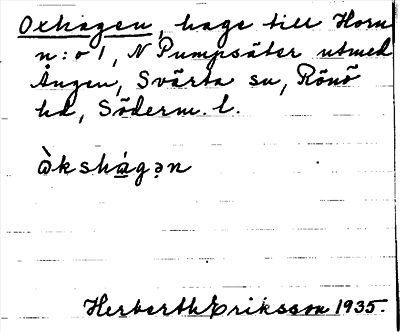 Oxhagen, hage till Horn
n:o 1, N Pumpsäter utmed
Ången, Svärta sn, Rönö
hd, Söderm. l.
ὼkshágən
Herberth Eriksson 1935.